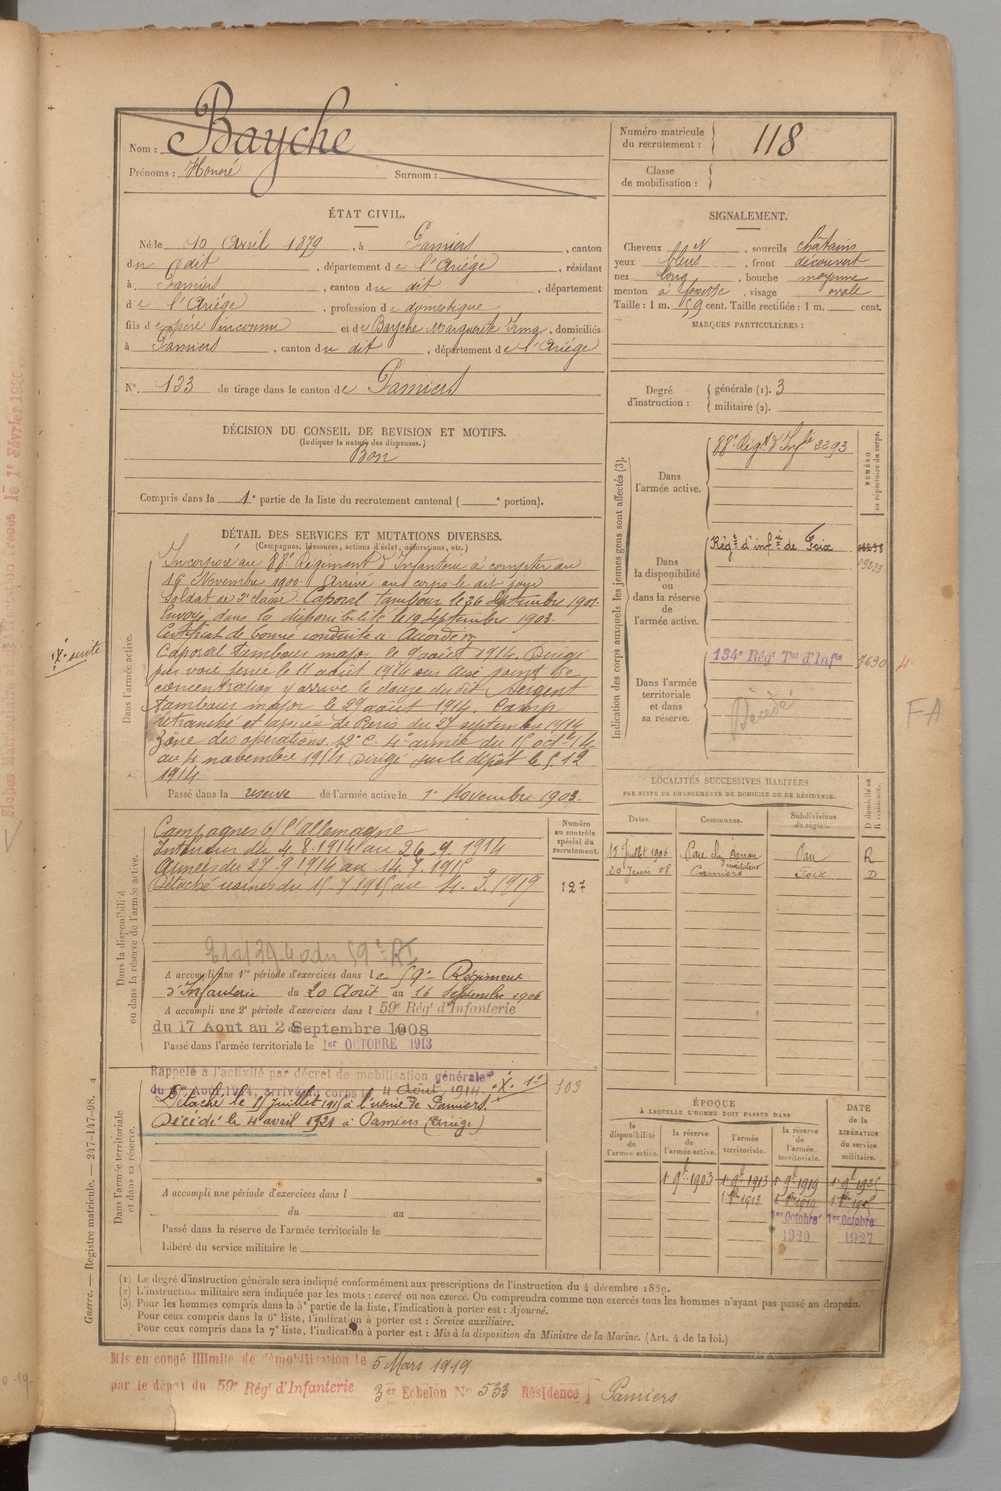 Nom : Bayche
Prénoms : Honoré Surnom :
Numéro matricule du recrutement : 118
Classe de mobilisation :
ÉTAT CIVIL.
Né le 10 Avril 1879, à Pamiers, canton
du dit, département de l'Ariége, résidant
à Pamiers, canton du dit, département
de l'Ariége, profession de domestique
fils de père inconnu et de Bayche Marguerite Irma, domiciliés
à Pamiers, canton du dit, département de l'Ariége
N° 133 de tirage dans le canton de Pamiers
SIGNALEMENT.
Cheveux N, sourcils châtains
yeux bleus, front découvert
nez long, bouche moyenne
menton à fossette, visage ovale
Taille : 1 m. 59 cent. Taille rectifiée : 1 m. cent.
MARQUES PARTICULIÈRES :
Degré d'instruction : générale (1). 3
militaire (2).
DÉCISION DU CONSEIL DE REVISION ET MOTIFS.
(Indiquer la nature des dispenses.)
Bon
Compris dans la 1e partie de la liste du recrutement cantonal ( e portion).
DÉTAIL DES SERVICES ET MUTATIONS DIVERSES.
(Campagnes, blessures, actions d'éclat, décorations, etc.)
Dans l'armée active.
Incorporé au 88e Régiment d'Infanterie à compter du
16 Novembre 1900. Arrivé au corps le dit jour
Soldat de 2e classe. Caporal tambour le 26 Septembre 1901.
Envoyé dans la disponibilité le 19 septembre 1903.
Certificat de bonne conduite « Accordé »
Caporal Tambour major le 9 août 1914. Dirigé
par voie ferrée le 11 août 1914 sur
concentration y arrive le douze du dit Sergent
tambour major le 29 août 1914. Camp
retranché et armées de Paris du 27 septembre 1914
Zône des opérations 12e C. 4e armée du 15 oct 14
au 4 novembre 1914 Dirigé sur le dépôt le 5.12
1914.
Passé dans la réserve de l'armée active le 1er Novembre 1903.
Indication des corps auxquels les jeunes gens sont affectés (3).
NUMÉRO au répertoire du corps.
Dans l'armée active.
88e Régt d'Infie 2293
Dans la disponibilité ou dans la réserve de l'armée active.
Régt d'infie de Foix
Dans l'armée territoriale et dans sa réserve.
134e Régt Tal d'Infie 7630
Décédé
FA
X suite
Dans la disponibilité ou dans la réserve de l'armée active.
Campagnes c/ l'allemagne
Intérieur du 4.8.1914 au 26.9.1914
Armées du 27.9.1914 au 14.7.1915
Détaché usines du 15.7.1915 au 4.3.1919
Numéro au contrôle spécial du recrutement.
127
A accompli une 1re période d'exercices dans le 59e Régiment
d'Infanterie du 20 Août au 16 Septembre 1906
A accompli une 2e période d'exercices dans l 59e Régt d'Infanterie
du 17 Aout au 2 Septembre 1908
Passé dans l'armée territoriale le 1er OCTOBRE 1913
LOCALITÉS SUCCESSIVES HABITÉES
PAR SUITE DE CHANGEMENTS DE DOMICILE OU DE RÉSIDENCE.
Dates. Communes. Subdivisions de région. D domicile ou R résidence.
15 Juillet 1906 Pau Pau R
20 Juin 08 Pamiers Foix D
Dans l'armée territoriale et dans sa réserve.
Rappelé à l'activité par décret de mobilisation générale
du 1er Août 1914, arrivé au corps le 4 Août 1914. X 1°
Détaché le 15 juillet 1915 à l'usine de Pamiers.
Décédé le 4 avril 1921 à Pamiers (Ariège)
103
A accompli une période d'exercices dans l
du au
Passé dans la réserve de l'armée territoriale le
Libéré du service militaire le
ÉPOQUE
À LAQUELLE L'HOMME DOIT PASSER DANS
la disponibilité de l'armée active. la réserve de l'armée active. l'armée territoriale. la réserve de l'armée territoriale.
DATE de la LIBÉRATION du service militaire.
1er 9bre 1903 1er 9bre 1913 1er 9bre 1919 1er 9bre 1925
1er 8bre 1913 1er 8bre 1919 1er 8bre 1925
1er Octobre 1920 1er Octobre 1927
(1) Le degré d'instruction générale sera indiqué conformément aux prescriptions de l'instruction du 4 décembre 1889.
(2) L'instruction militaire sera indiquée par les mots : exercé ou non exercé. On comprendra comme non exercés tous les hommes n'ayant pas passé au drapeau.
(3) Pour les hommes compris dans la 5e partie de la liste, l'indication à porter est : Ajourné.
Pour ceux compris dans la 6e liste, l'indication à porter est : Service auxiliaire.
Pour ceux compris dans la 7e liste, l'indication à porter est : Mis à la disposition du Ministre de la Marine. (Art. 4 de la loi.)
Guerre. — Registre matricule. — 247-147-98. 4
Mis en congé illimité de démobilisation le 5 Mars 1919
par le dépôt du 59e Régt d'Infanterie 3er Echelon No 533 Résidence Pamiers